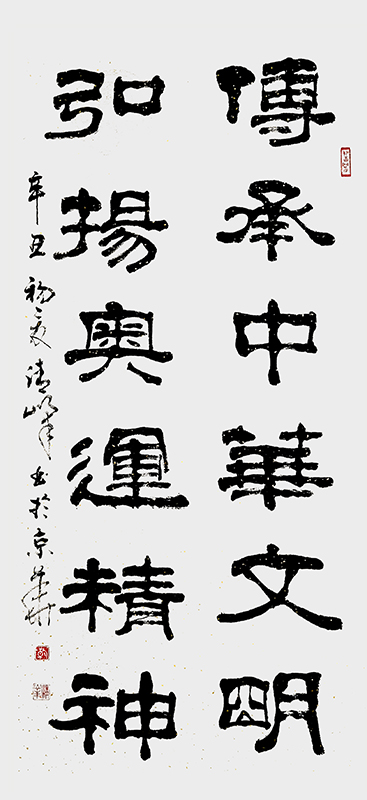 傳承中華文明
弘揚奧運精神
辛丑初夏清峰书於京華